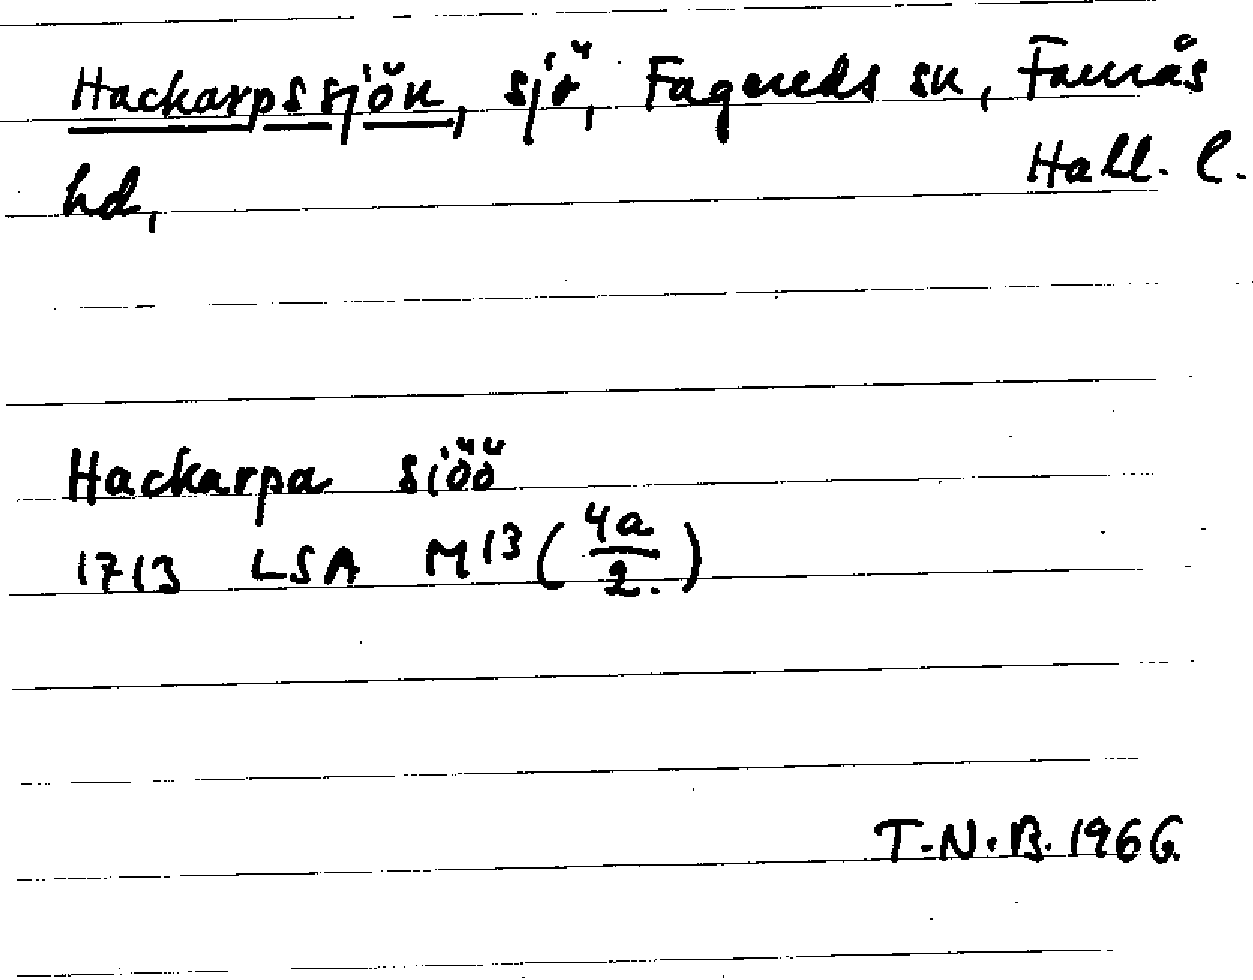 Hackarpssjön, sjö, Fagereds sn, Faurås
hd, Hall. l.
Hackarpa siöö
1713 LSA M13 (4a/2.)
T.N.B. 1966.